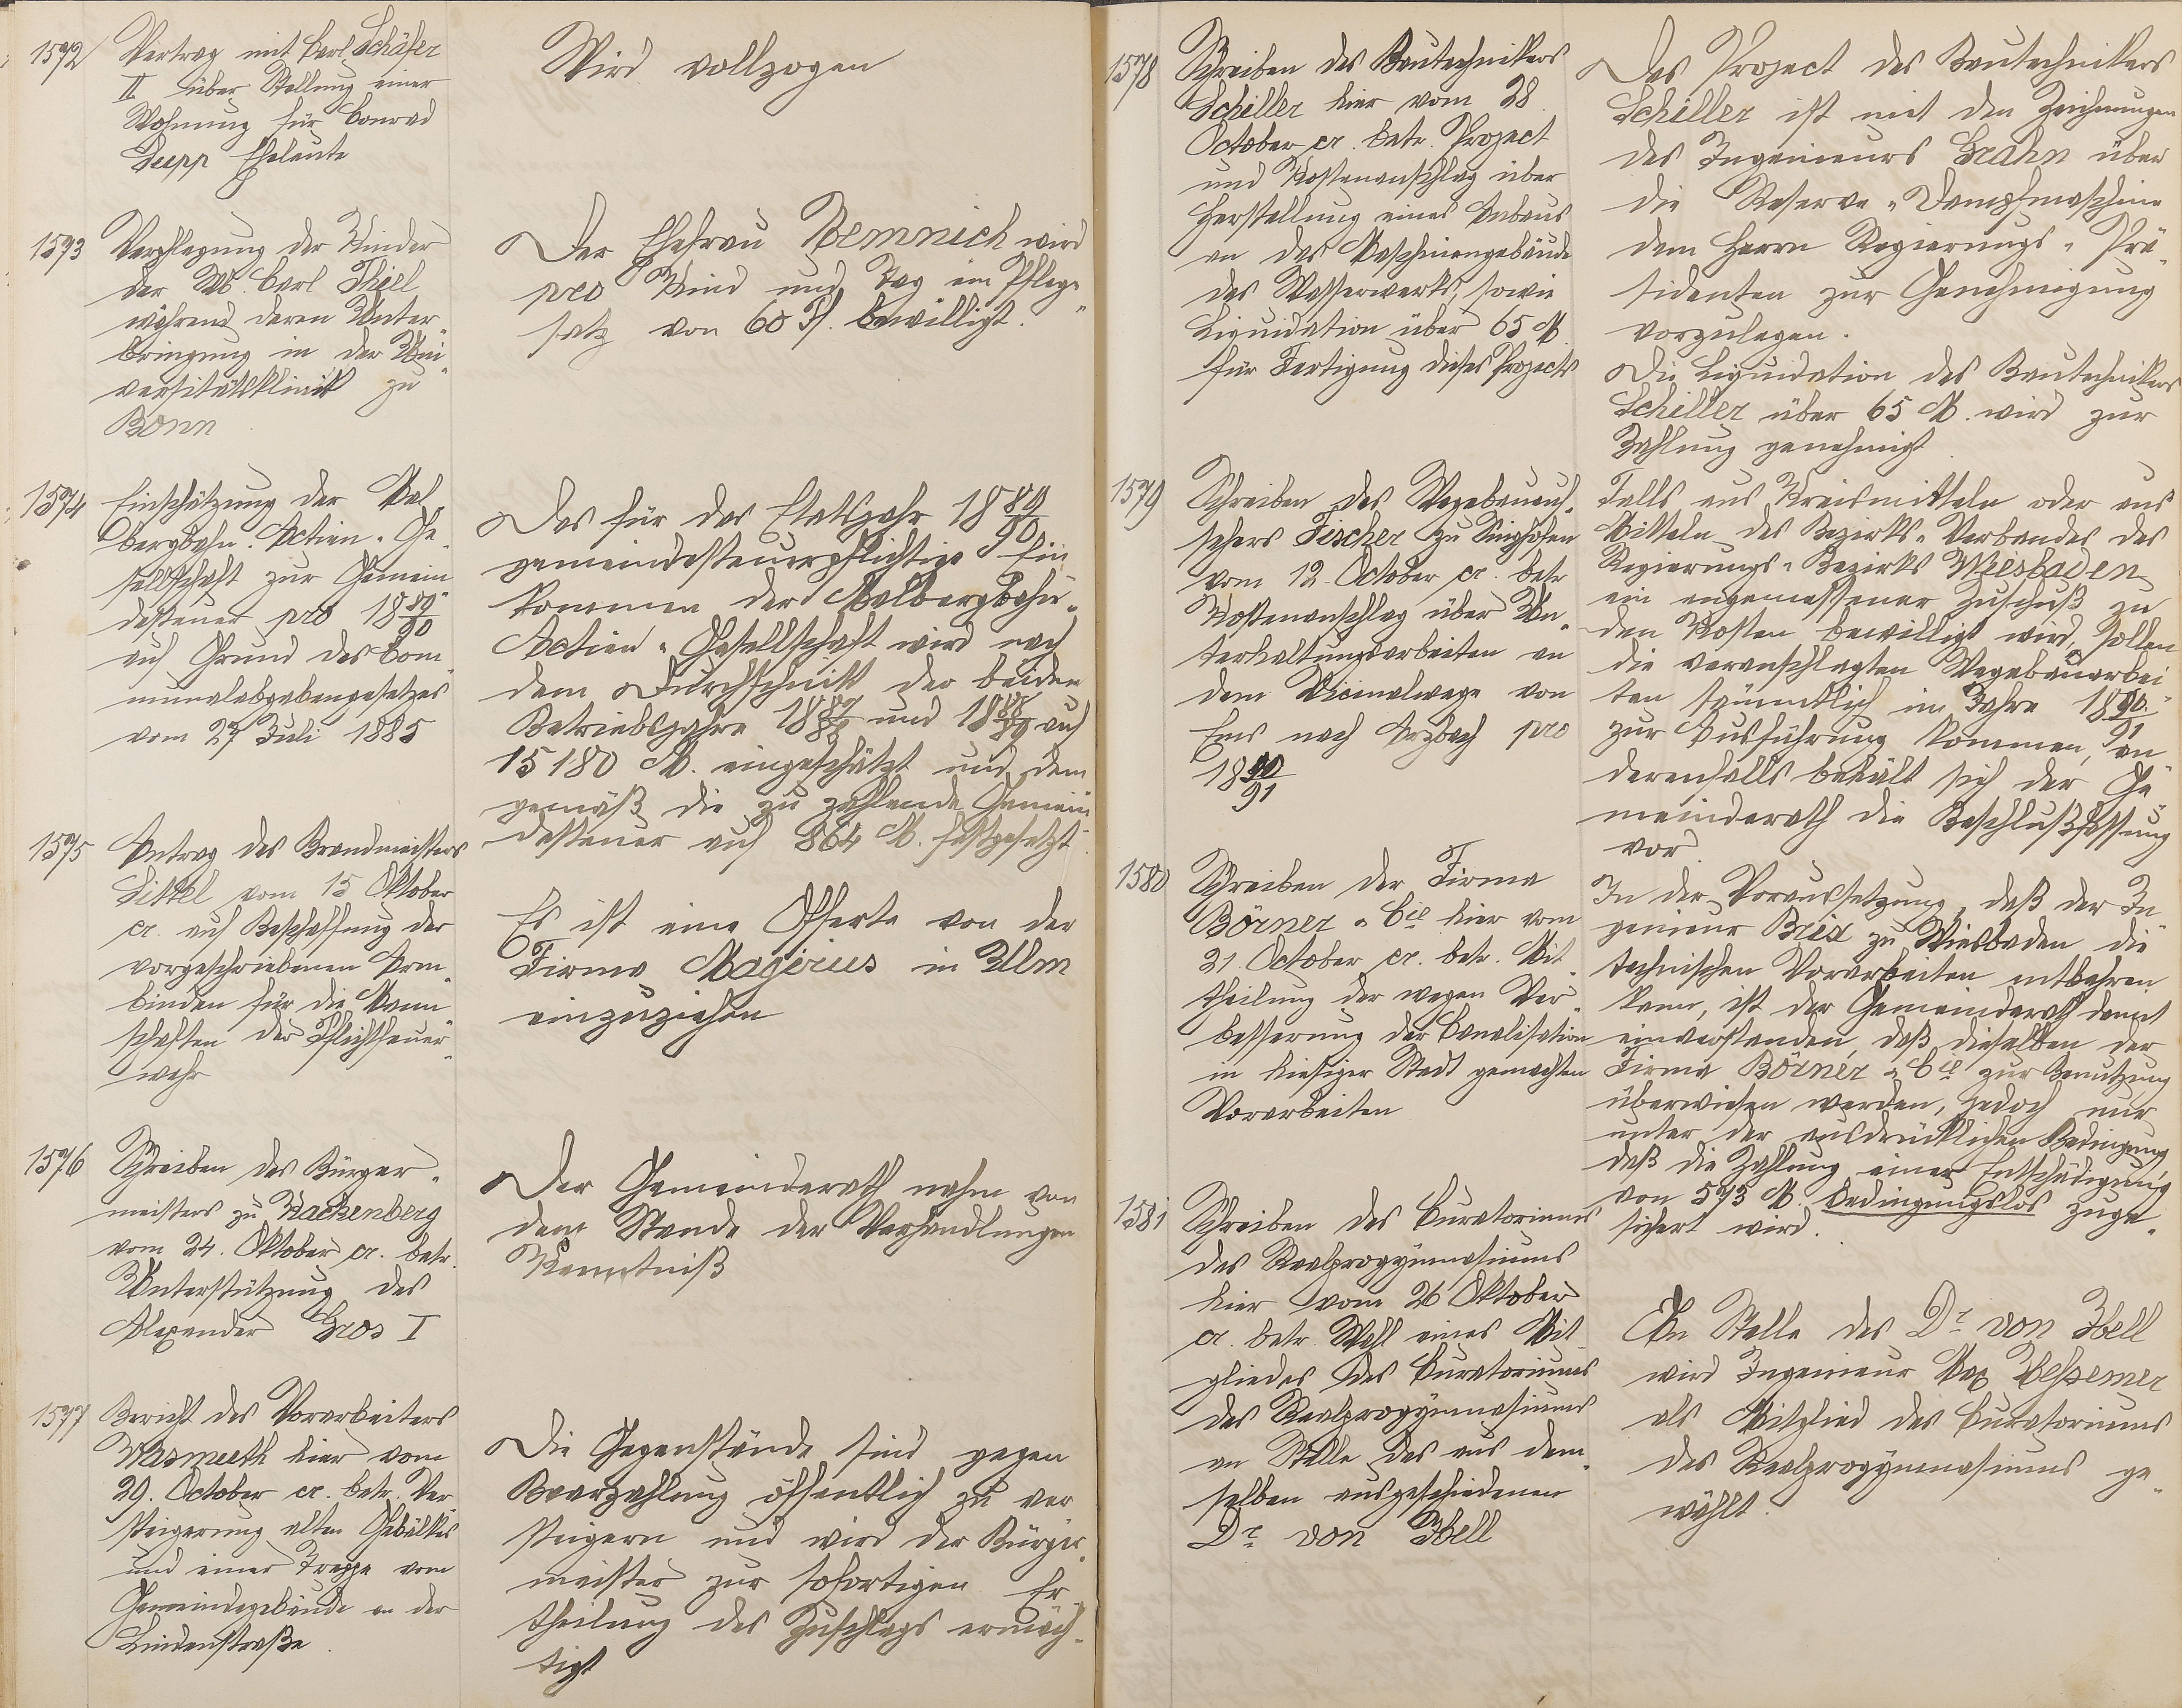 1572
Vertrag mit Carl Schäfer
II über Stellung einer
Wohnung für Conrad
Supp Eheleute
Wird vollzogen
1573
Verpflegung der Kinder
der W. Carl Thiel
während deren Unter-
bringung in der Uni-
versitätsklinik zu
Bonn
Der Ehefrau Remnich wird
pro Kind und Tag ein Pflege-
satz von 60 Pf. bewilligt.
1574
Einschätzung der Mal-
bergbahn-Actien-Ge-
sellschaft zur Gemein-
desteuer pro 1889/90
auf Grund des Com-
munalabgabengesetzes
vom 27 Juli 1885
Das für das Etatsjahr 1889/90
gemeindesteuerpflichtige Ein-
kommen der Malbergbahn-
Actien-Gesellschaft wird nach
dem Durchschnitt der beiden
Betriebsjahre 1887/88 und 1888/89 auf
15180 M. eingeschätzt und dem
gemäß die zu zahlende Gemein-
desteuer auf 864 M. festgesetzt.
1575
Antrag des Brandmeisters
Sittel vom 15 Oktober
cr. auf Beschaffung der
vorgeschriebenen Arm-
binden für die Mann-
schaften der Pflichtfeuer-
wehr
Es ist eine Offerte von der
Firma Magirius in Ulm
einzuziehen
1576
Schreiben des Bürger-
meisters zu Hachenberg
vom 24. Oktober cr. betr.
Unterstützung des
Alexander Gros I
Der Gemeinderath nahm von
dem Stande der Verhandlungen
Kenntniß
1577
Bericht des Vorarbeiters
Wasmuth hier vom
29. October cr. betr. Ver-
steigerung alten Gebälkes
und einer Treppe vom
Gemeindegebäude an der
Lindenstraße.
Die Gegenstände sind gegen
Baarzahlung öffentlich zu ver-
steigern und wird der Bürger-
meister zur sofortigen Er-
theilung des Zuschlags ermäch-
tigt
1578
Schreiben des Bautechnikers
Schiller hier vom 28.
October cr. betr. Project
und Kostenanschlag über
Herstellung eines Anbaus
an das Maschinengebäude
des Wasserwerks, sowie
Liquidation über 65 M.
für Fertigung dieses Projects
Das Project des Bautechnikers
Schiller ist mit den Zeichnungen
des Ingenieurs Grahn über
die Reserve-Dampfmaschine
dem Herrn Regierungs-Prä-
sidenten zur Genehmigung
vorzulegen.
Die Liquidation des Bautechnikers
Schiller über 65 M. wird zur
Zahlung genehmigt
1579
Schreiben des Wegebauauf-
sehers Fischer zu Singhofen
vom 12. October cr. betr.
Kostenanschlag über Un-
terhaltungsarbeiten an
dem Vicinalwege von
Ems nach Arzbach pro
1890/91
Falls aus Kreismitteln oder aus
Mitteln des Bezirks-Verbandes des
Regierungs-Bezirks Wiesbaden
ein angemessener Zuschuß zu
den Kosten bewilligt wird, sollen
die veranschlagten Wegebauarbei-
ten sämmtlich im Jahre 1890/91
zur Ausführung kommen, an-
derenfalls behält sich der Ge-
meinderath die Beschlußfassung
vor.
1580
Schreiben der Firma
Börner & Cie hier vom
21. October cr. betr. Mit-
theilung der wegen Ver-
besserung der Canalisation
in hiesiger Stadt gemachten
Vorarbeiten
In der Voraussetzung, daß der In-
genieur Brix zu Wiesbaden die
technischen Vorarbeiten entbehren
kann, ist der Gemeinderath damit
einverstanden, daß dieselben der
Firma Börner & Cie zur Benutzung
überwiesen werden, jedoch nur
unter der ausdrücklichen Bedingung,
daß die Zahlung einer Entschädigung
von 573 M. bedingungslos zuge-
sichert wird.
1581
Schreiben des Curatoriums
des Realprogymnasiums
hier vom 26 Oktober
cr. betr. Wahl eines Mit-
gliedes des Curatoriums
des Realprogymnasiums
an Stelle des aus dem-
selben ausgeschiedenen
Dr. von Ibell
An Stelle des Dr. von Ibell
wird Ingenieur Max Hessemer
als Mitglied des Curatoriums
des Realprogymnasiums ge-
wählt.